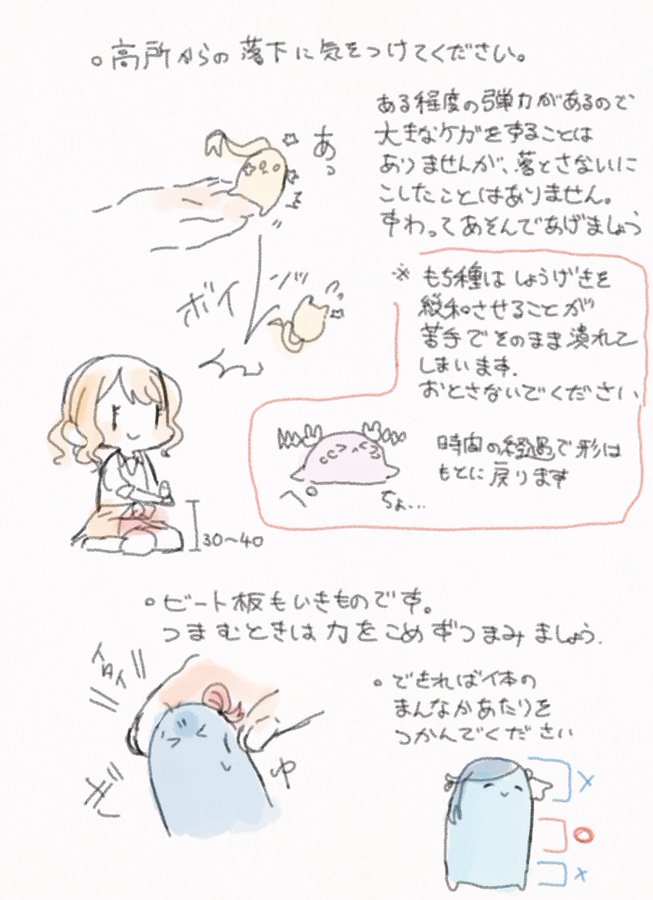 。高所からの落下に気をつけてください。
ある程度の弾力があるので
大きなケガをすることは
ありませんが、落とさないに
こしたことはありません。
すわってあそんであげましょう
あっ
ボイ
※ もち種はしょうげきを
緩和させることが
苦手でそのまま潰れて
しまいます.
おとさないでください
時間の経過で形は
もとに戻ります
ぺ
ちょ…
30~40
。ビート板もいきものです。
つまむときは力をこめずつまみましょう.
イタイ
ぎ
ゆ
。できれば体の
まんなかあたりを
つかんでください
×
○
×